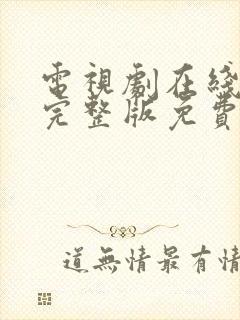 電視劇在綫
完整版免費
道無情最有情